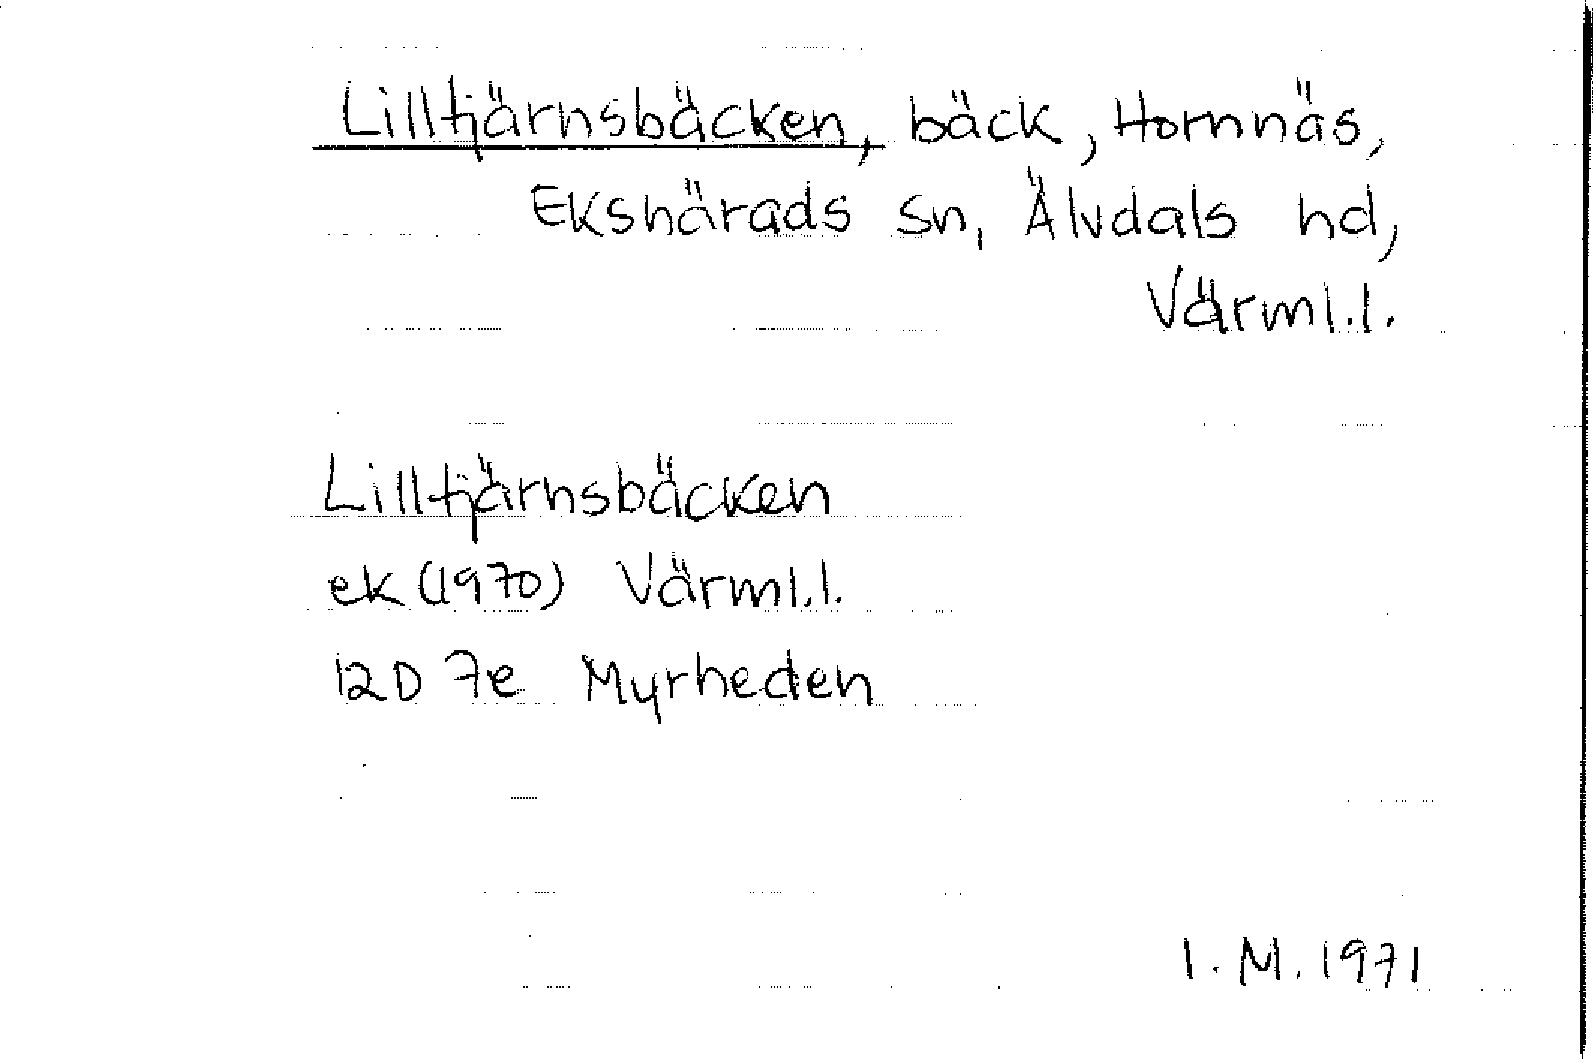 Lilltjärnsbäcken, bäck, Hornnäs,
Ekshärads sn, Älvdals hd,
Värml.l.
Lilltjärnsbäcken
ek (1970) Värml.l.
12D 7e Myrheden
I.M. 1971